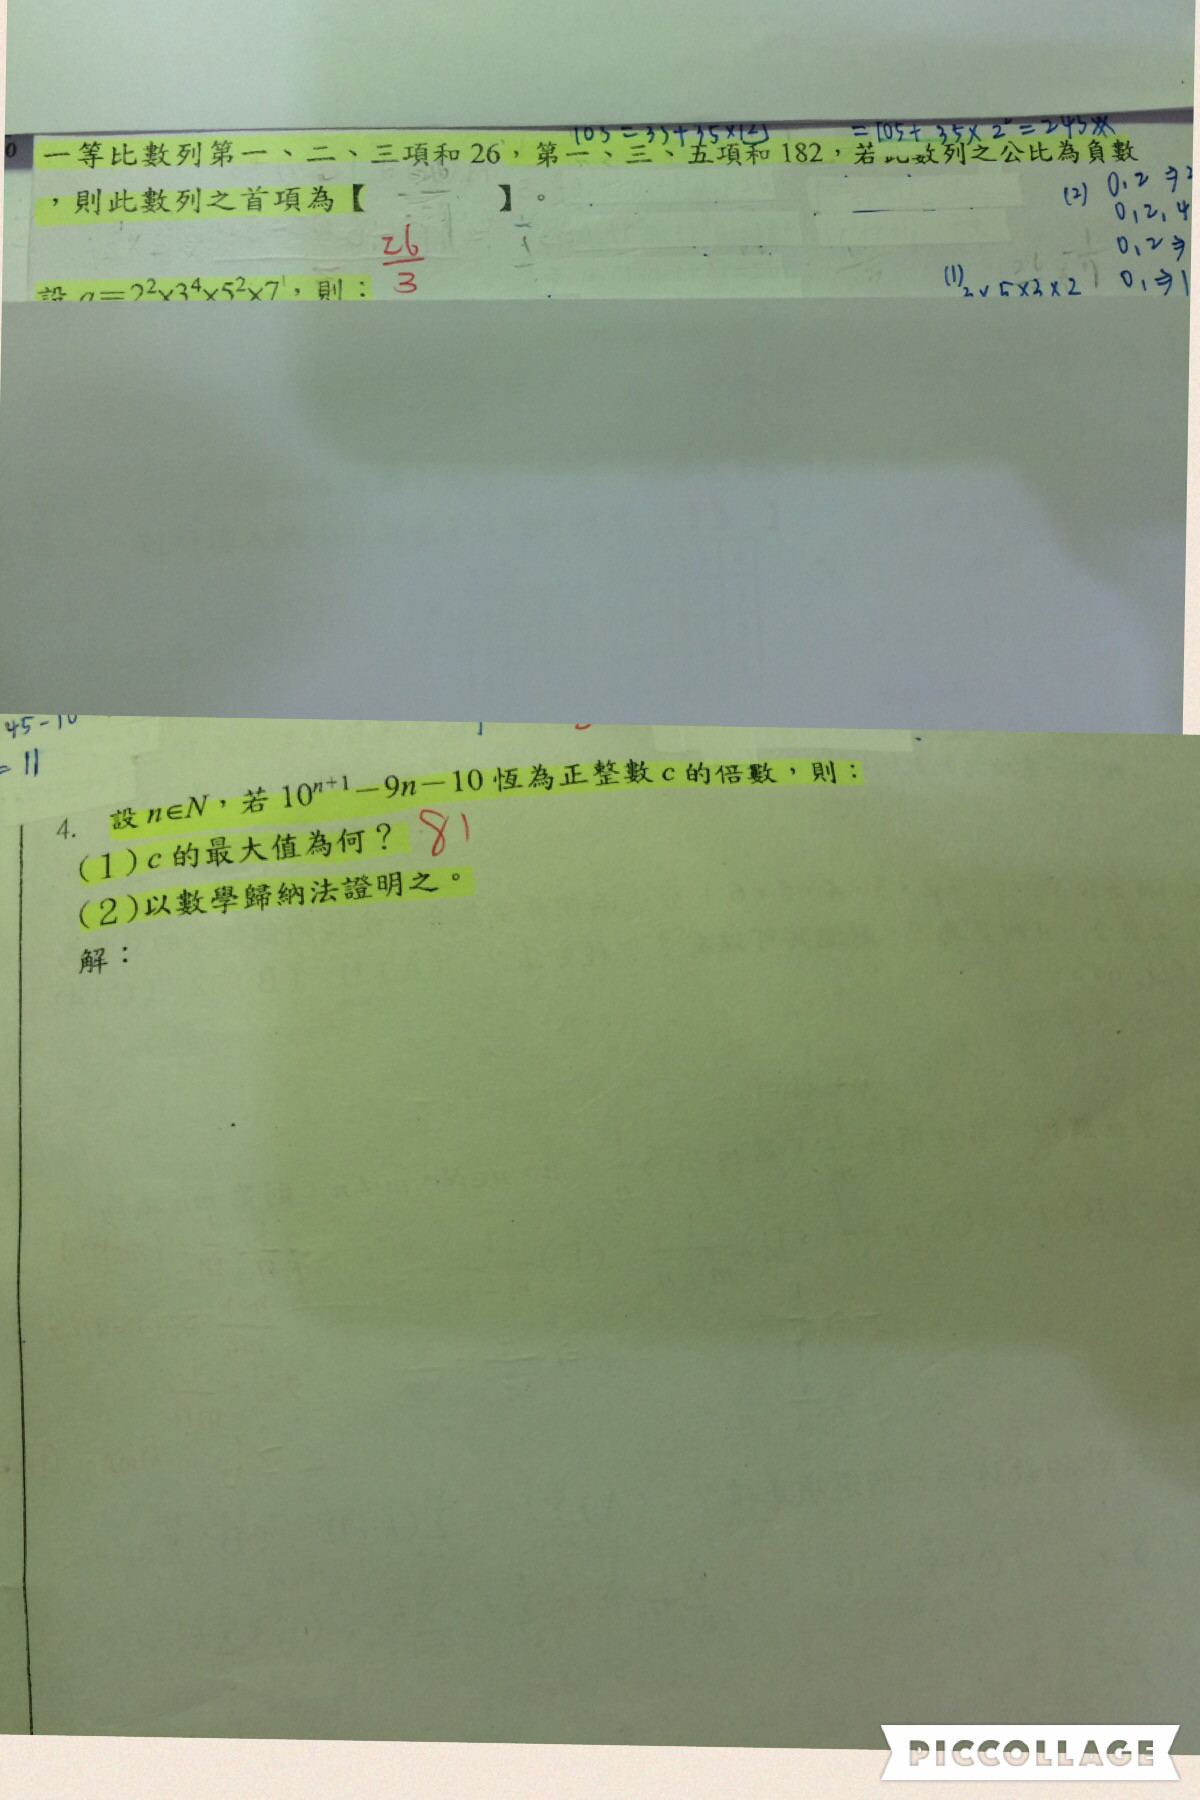 103=35+35×[2] =105+35×2=245
一等比數列第一、二、三項和26，第一、三、五項和182，若此數列之公比為負數
，則此數列之首項為【 】。
26/3
(2) 0,2⇒2
0,2,4
0,2⇒
設a=2²×3⁴×5²×7¹，則：
(1) 3×5×3×2 0,1⇒1
45-10
=11
4. 設n∈N，若10ⁿ⁺¹－9n－10恆為正整數c的倍數，則：
(1)c的最大值為何？ 81
(2)以數學歸納法證明之。
解：
PICCOLLAGE